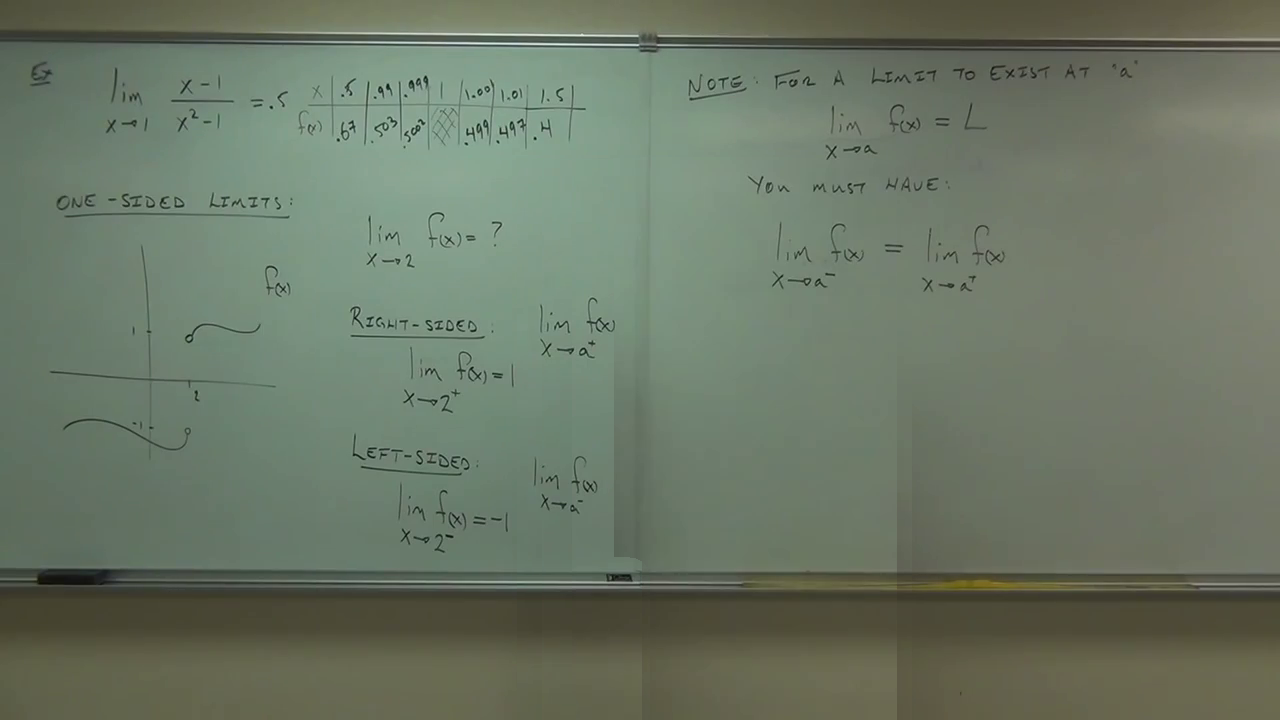 Ex
lim x→1 x-1/x²-1 = .5
x | .5 | .99 | .999 | 1 | 1.00 | 1.01 | 1.5
f(x) | .67 | .503 | .5002 | | .499 | .497 | .4
ONE-SIDED LIMITS:
f(x)
1
2
-1
lim x→2 f(x) = ?
RIGHT-SIDED: lim x→a⁺ f(x)
lim x→2⁺ f(x) = 1
LEFT-SIDED: lim x→a⁻ f(x)
lim x→2⁻ f(x) = -1
NOTE: FOR A LIMIT TO EXIST AT "a"
lim x→a f(x) = L
YOU MUST HAVE:
lim x→a⁻ f(x) = lim x→a⁺ f(x)